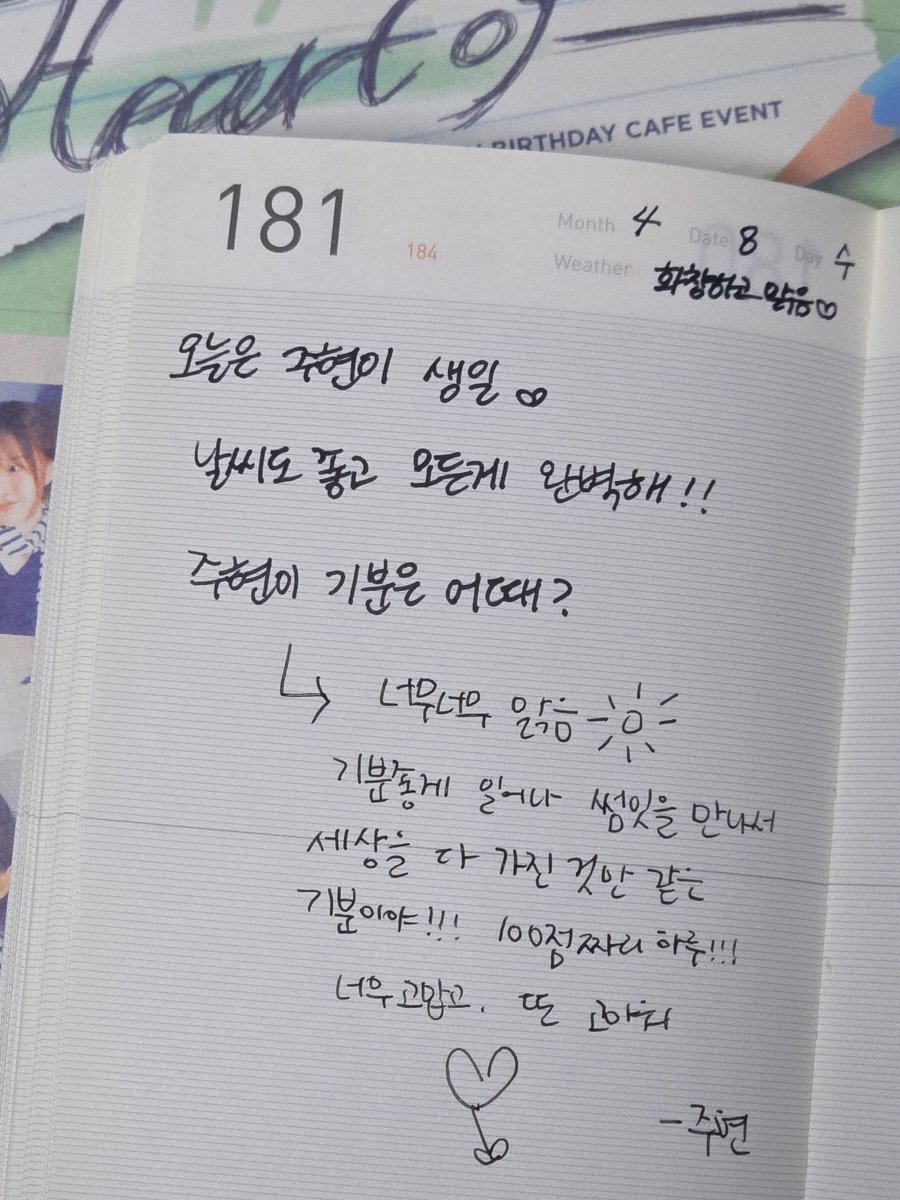 Heart of
BIRTHDAY CAFE EVENT
181
184
Month 4 Date 8 Day 수
Weather 화창하고 맑음♡
오늘은 주현이 생일♡
날씨도 좋고 모든게 완벽해!!
주현이 기분은 어때?
↳ 너무너무 맑음
기분좋게 일어나 썸잇을 만나서
세상을 다 가진 것만 같은
기분이야!!! 100점짜리 하루!!!
너무 고맙고. 또 고마워
-주현